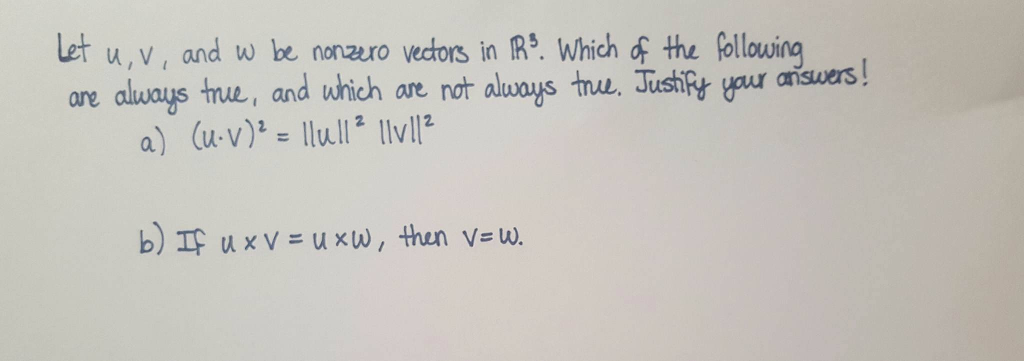 Let u, v, and w be nonzero vectors in ℝ³. Which of the following
are always true, and which are not always true. Justify your answers!
a) (u·v)² = ||u||² ||v||²
b) If u x v = u x w, then v = w.